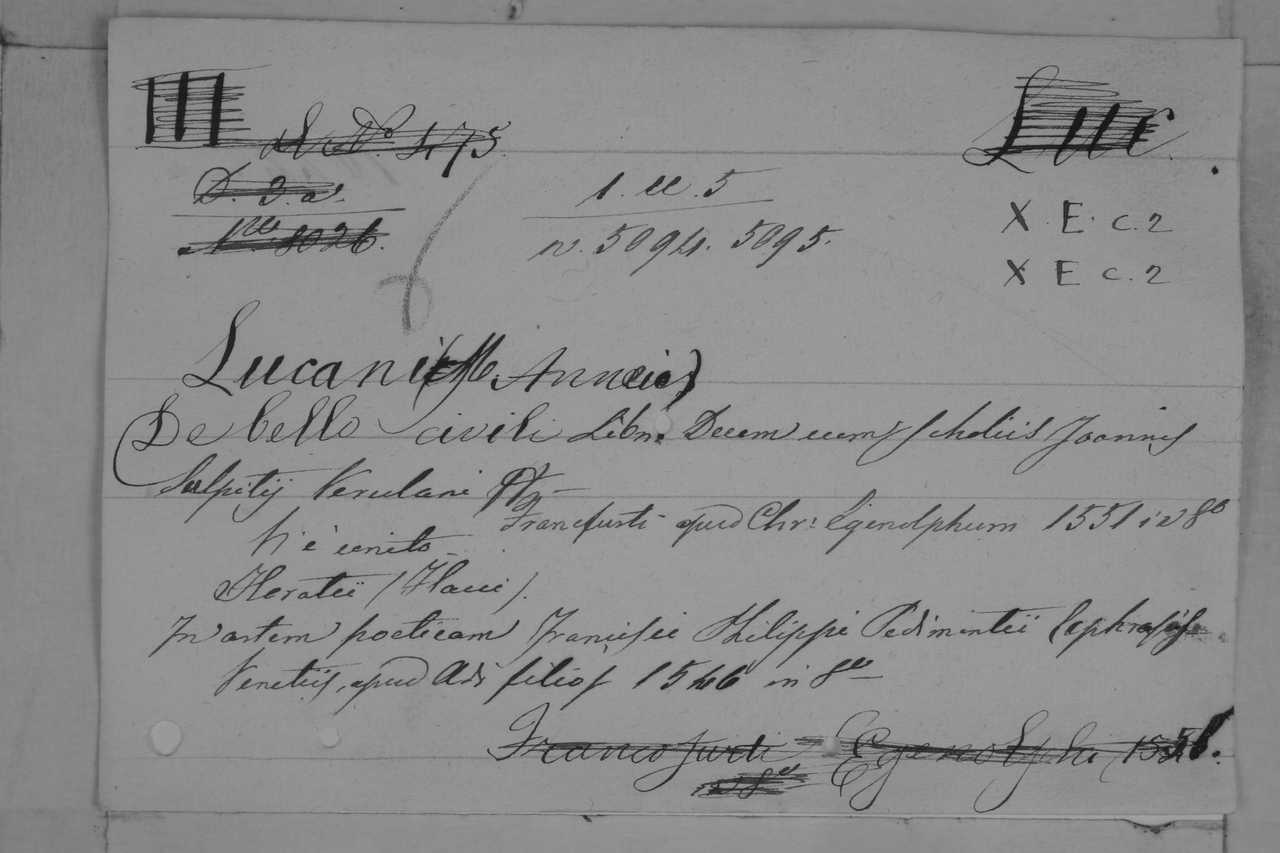 III
N.º 475.
Luc.
D. 3. a.
1. u. 5
X. E. c. 2
N.ro 8026.
n. 5094. 5095.
X E c. 2
Lucani (M. Annei)
De bello civili Libri Decem cum scholiis Joannis
Sulpitij Verulani
Francfurti apud Chr: Egenolphum 1551 in 8º
V'è unito
Horatii (Flacci).
In artem poeticam Francisci Philippi Pedimontii Ecphrasis
Venetiis, apud Aldi filios 1546 in 8º
Francofurti Egenolphi 1551.
in 8º